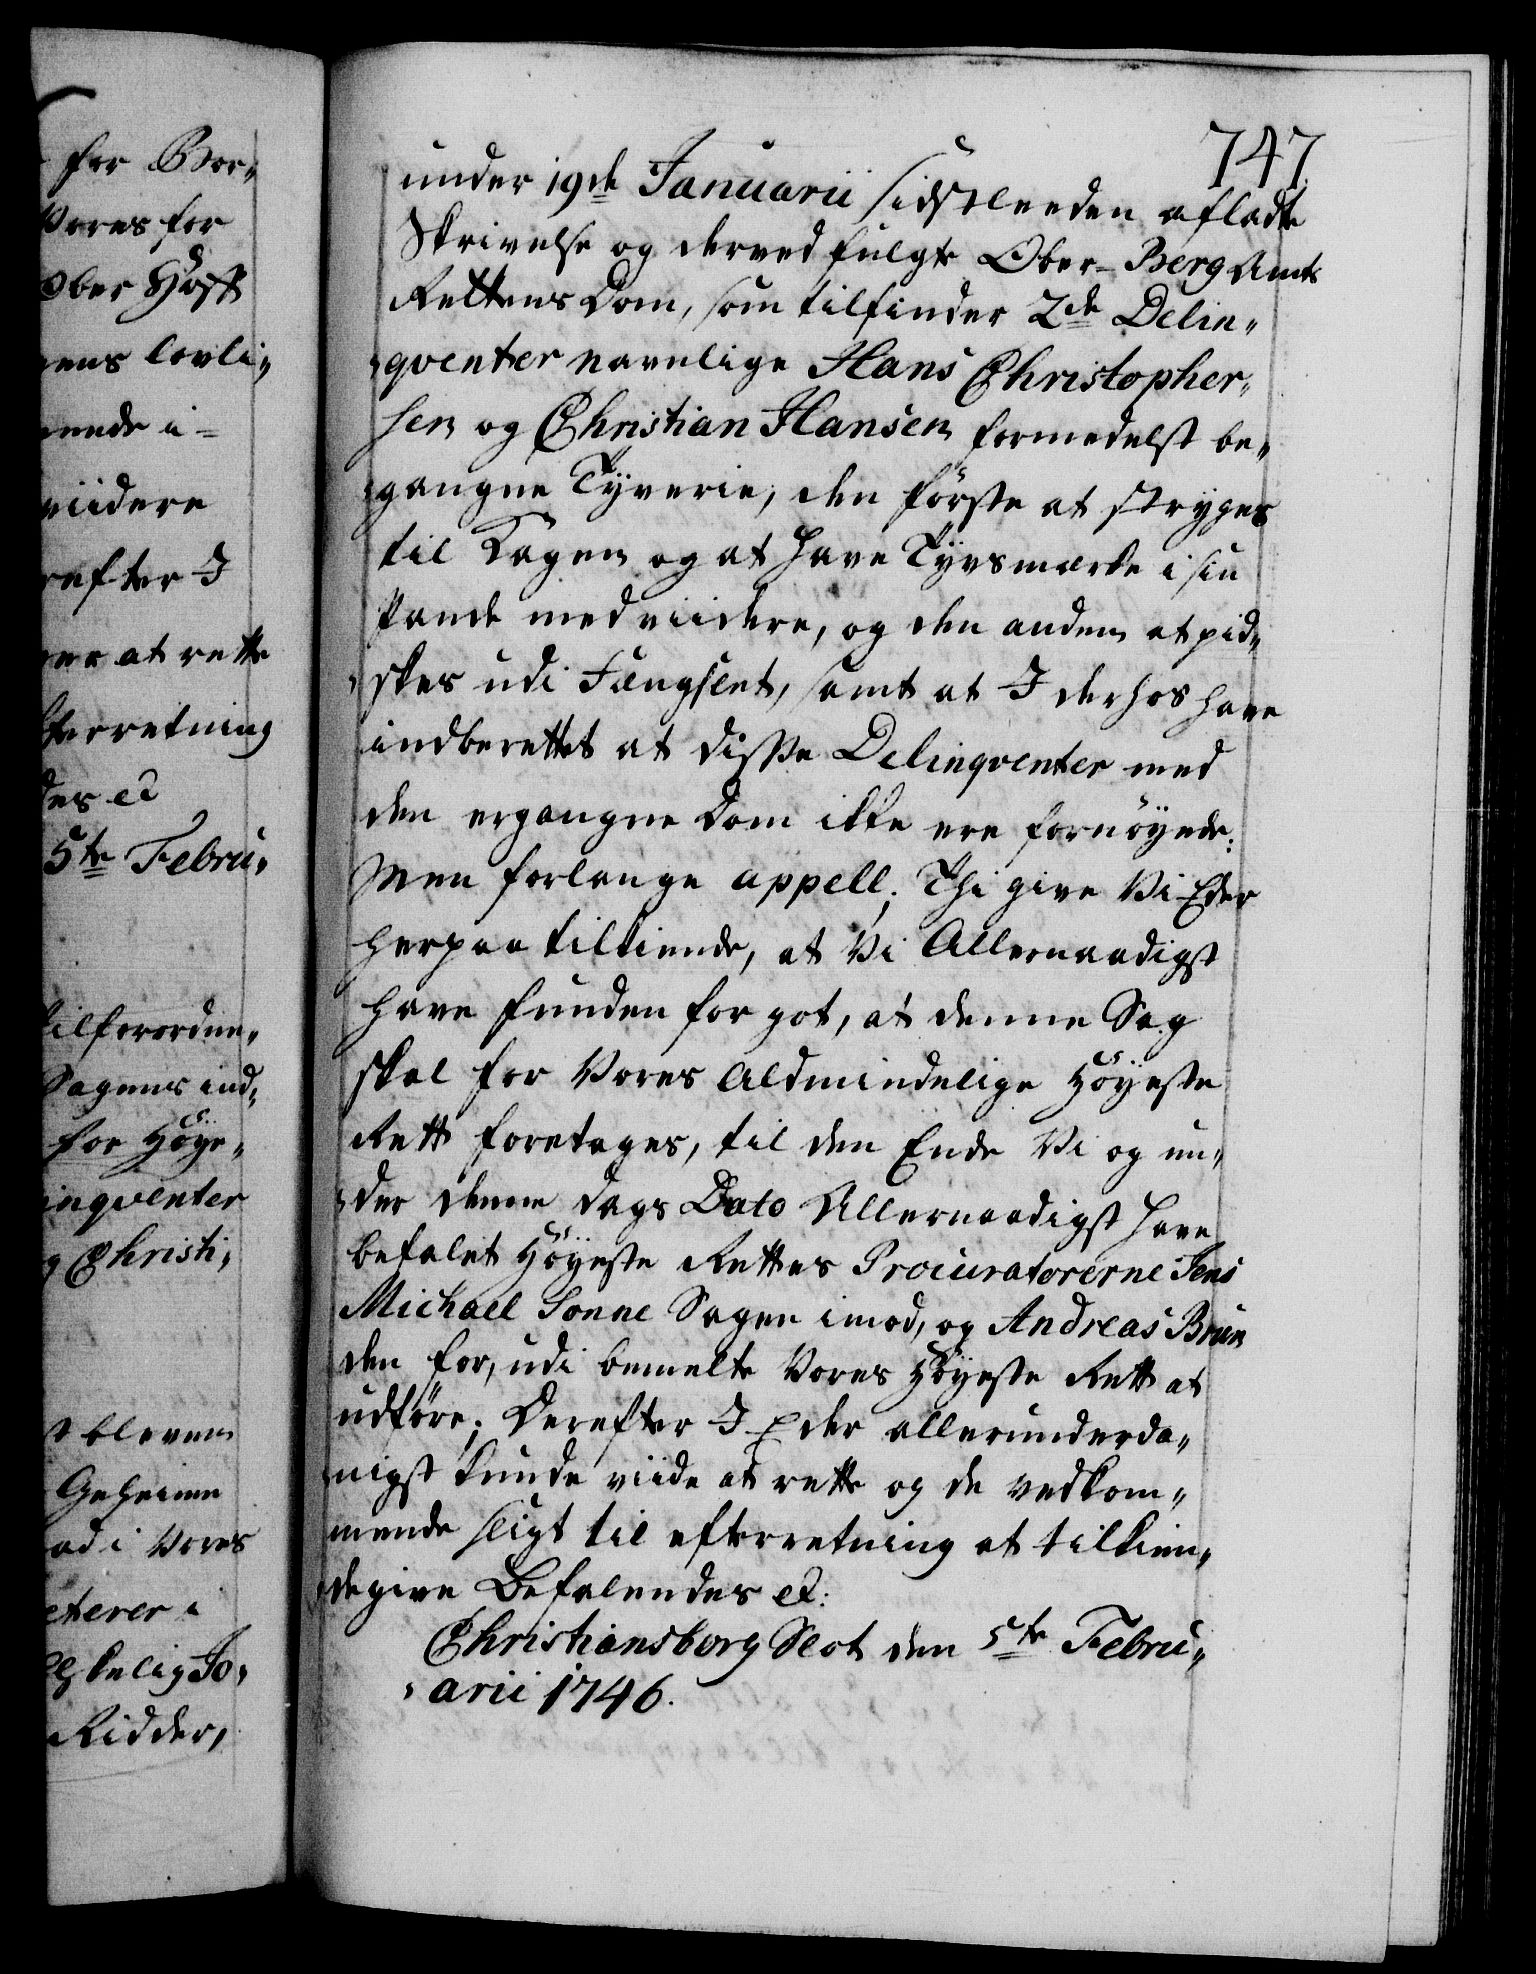 for Bor„
Vores for
Ober Hoff
ens lovli„
ende i-
viidere
refter I
at rette
fterretning
des ec
5te Febru„
tilforordne„
Sagens ind„
for Höye„
inqventer
Christi„
t bleven
Geheime
ad i Vores
eterer i
Elskelig Jo„
Ridder,
747.
under 19de Januarii sidstleeden afladte
Skrivelse og derved fulgte Ober-Berg Amts
Rettens Dom, som tilfinder 2de Delin„
„qventer navnlige Hans Christopher„
sen og Christian Hansen formedelst be„
„gangne Tyverie, den förste at stryges
til Kagen og at have Tyvsmærke i sin
Pande med viidere, og den anden at pid„
„skes udi Fængslet, samt at I derhos have
indberettet at disse Delinqventer med
den ergangne Dom ikke ere fornöyede.
Men forlange appell; Thi give Vi Eder
herpaa tilkiende, at Vi Allernaadigst
have funden for got, at denne Sag
skal for Vores Aldmindelige Höyeste
Rett foretages, til den Ende Vi og un„
„der denne Dags Dato Allernaadigst have
befalet Höyeste Rettes Procuratorerne Jens
Michael Sonne Sagen imod, og Andreas Brun
den for, udi bemelte Vores Höyeste Rett at
udföre; Derefter I Eder allerunderda„
„nigst kunde viide at rette og de vedkom„
mende sligt til efterretning at tilkien„
„degive Befalendes ec:
Christiansborg Slot den 5te Febru„
„arii 1746.